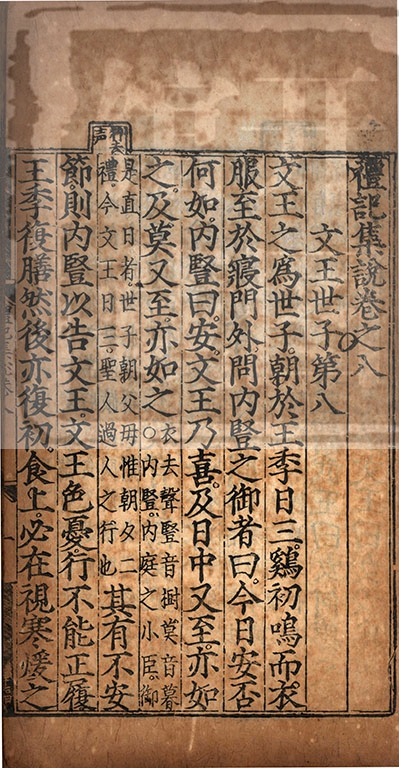 禮記集說卷之八
文王世子第八
文王之爲世子。朝於王季日三。鷄初鳴。而衣
服至於寢門外。問內豎之御者曰。今日安否
何如。內豎曰。安。文王乃喜。及日中又至。亦如
之。及莫又至。亦如之○衣去聲豎音樹莫音暮內豎。內庭之小臣。御
是直日者。世子朝父母。惟朝夕二禮。今文王日三。聖人過人之行也其有不安
節。則內豎以告文王。文王色憂。行不能正履
王季復膳。然後亦復初。食上。必在視寒煖之